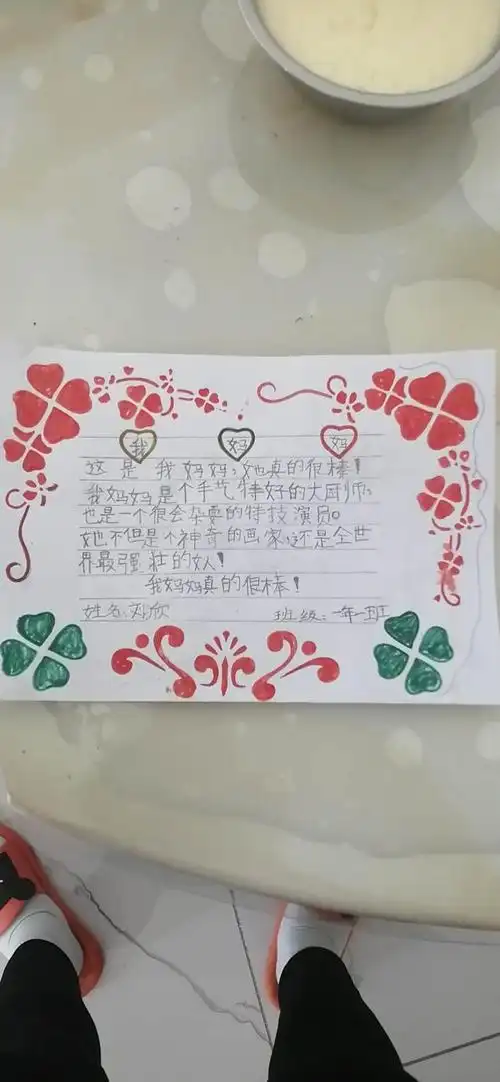 我 妈 妈
这是我妈妈,她真的很棒!
我妈妈是个手艺特好的大厨师,
也是一个很会杂耍的特技演员。
她不但是个神奇的画家,还是全世
界最强壮的女人!
我妈妈真的很棒!
姓名:刘欣 班级:一年一班